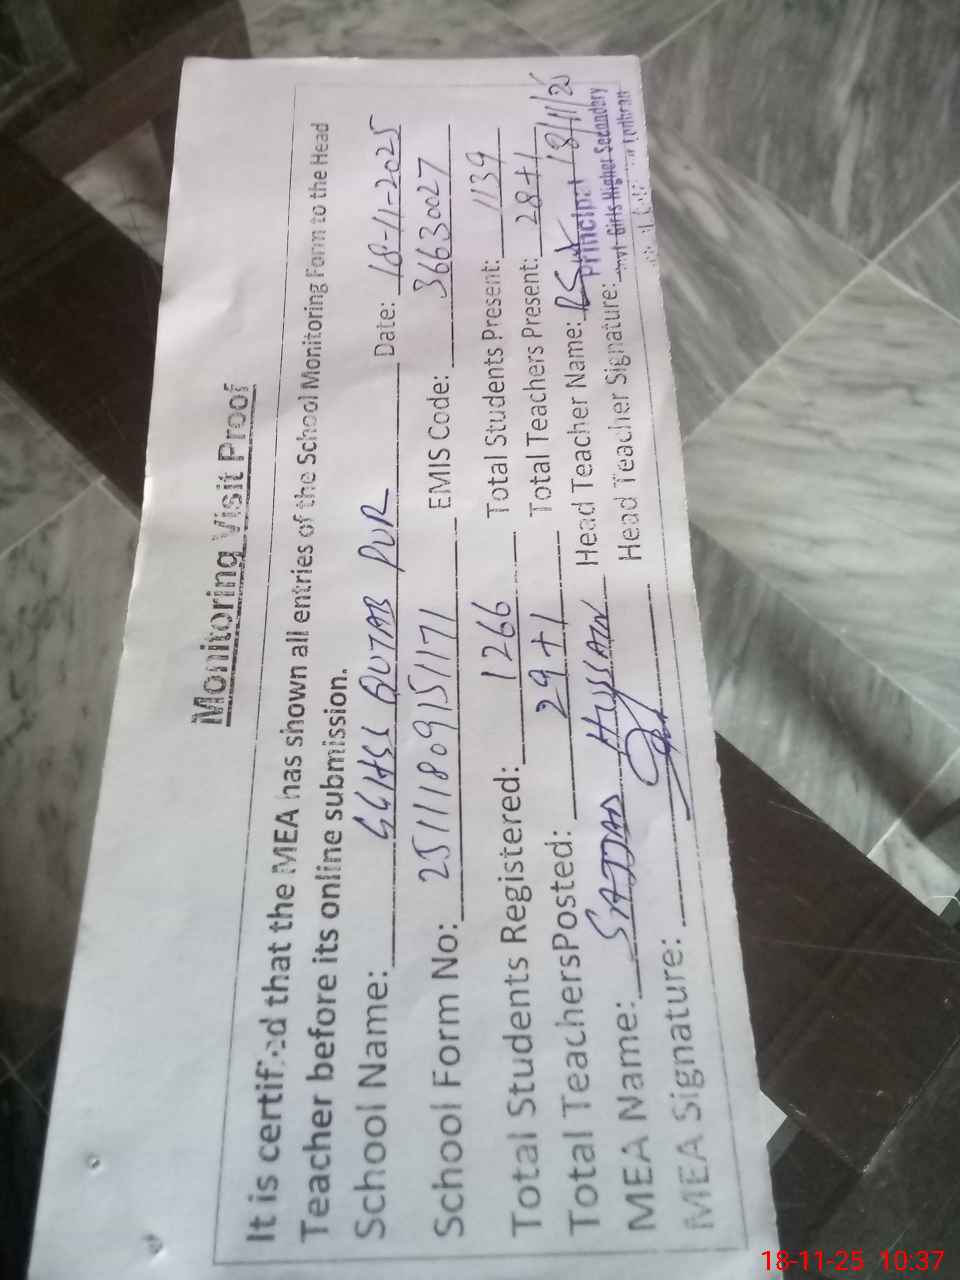 Monitoring Visit Proof
It is certified that the MEA has shown all entries of the School Monitoring Form to the Head
Teacher before its online submission.
School Name: GGHSS QUTAB PUR Date: 18-11-2025
School Form No: 25111809151171 EMIS Code: 36630027
Total Students Registered: 1266 Total Students Present: 1139
Total TeachersPosted: 29+1 Total Teachers Present: 28+1
MEA Name: SAJJAD HUSSAIN Head Teacher Name: 18/11/25
Principal
MEA Signature: Head Teacher Signature: Girls Higher Secondary
Lodhran
18-11-25 10:37